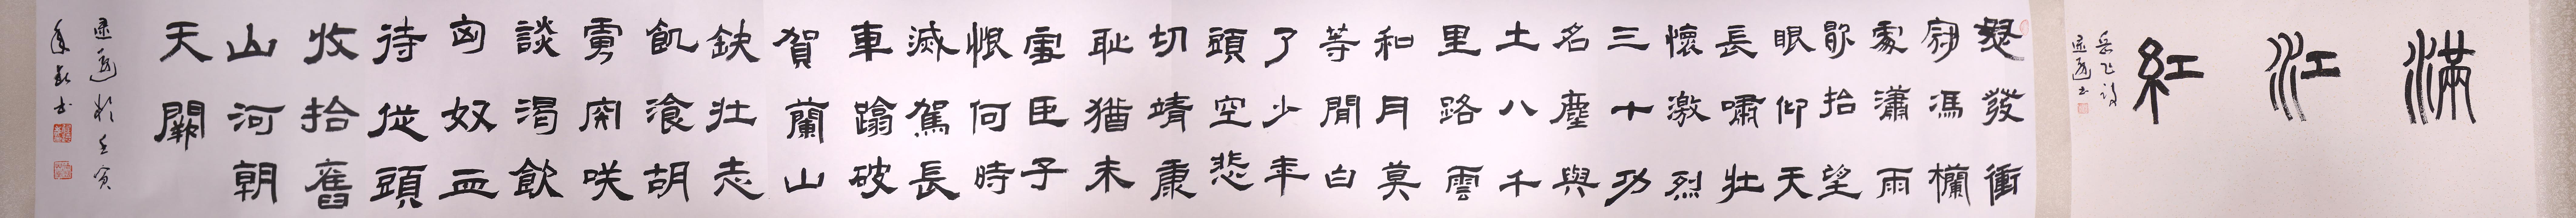 滿江紅
岳飞词
怒發衝
冠馮欄
處瀟雨
歇抬望
眼仰天
長嘯壯
懷激烈
三十功
名塵與
土八千
里路雲
和月莫
等閒白
了少年
頭空悲
切靖康
恥猶未
雪臣子
恨何時
滅駕長
車蹋破
賀蘭山
缺壯志
飢湌胡
虜宍咲
談渴飲
匈奴血
待從頭
收拾舊
山河朝
天闕
於壬寅
年
书